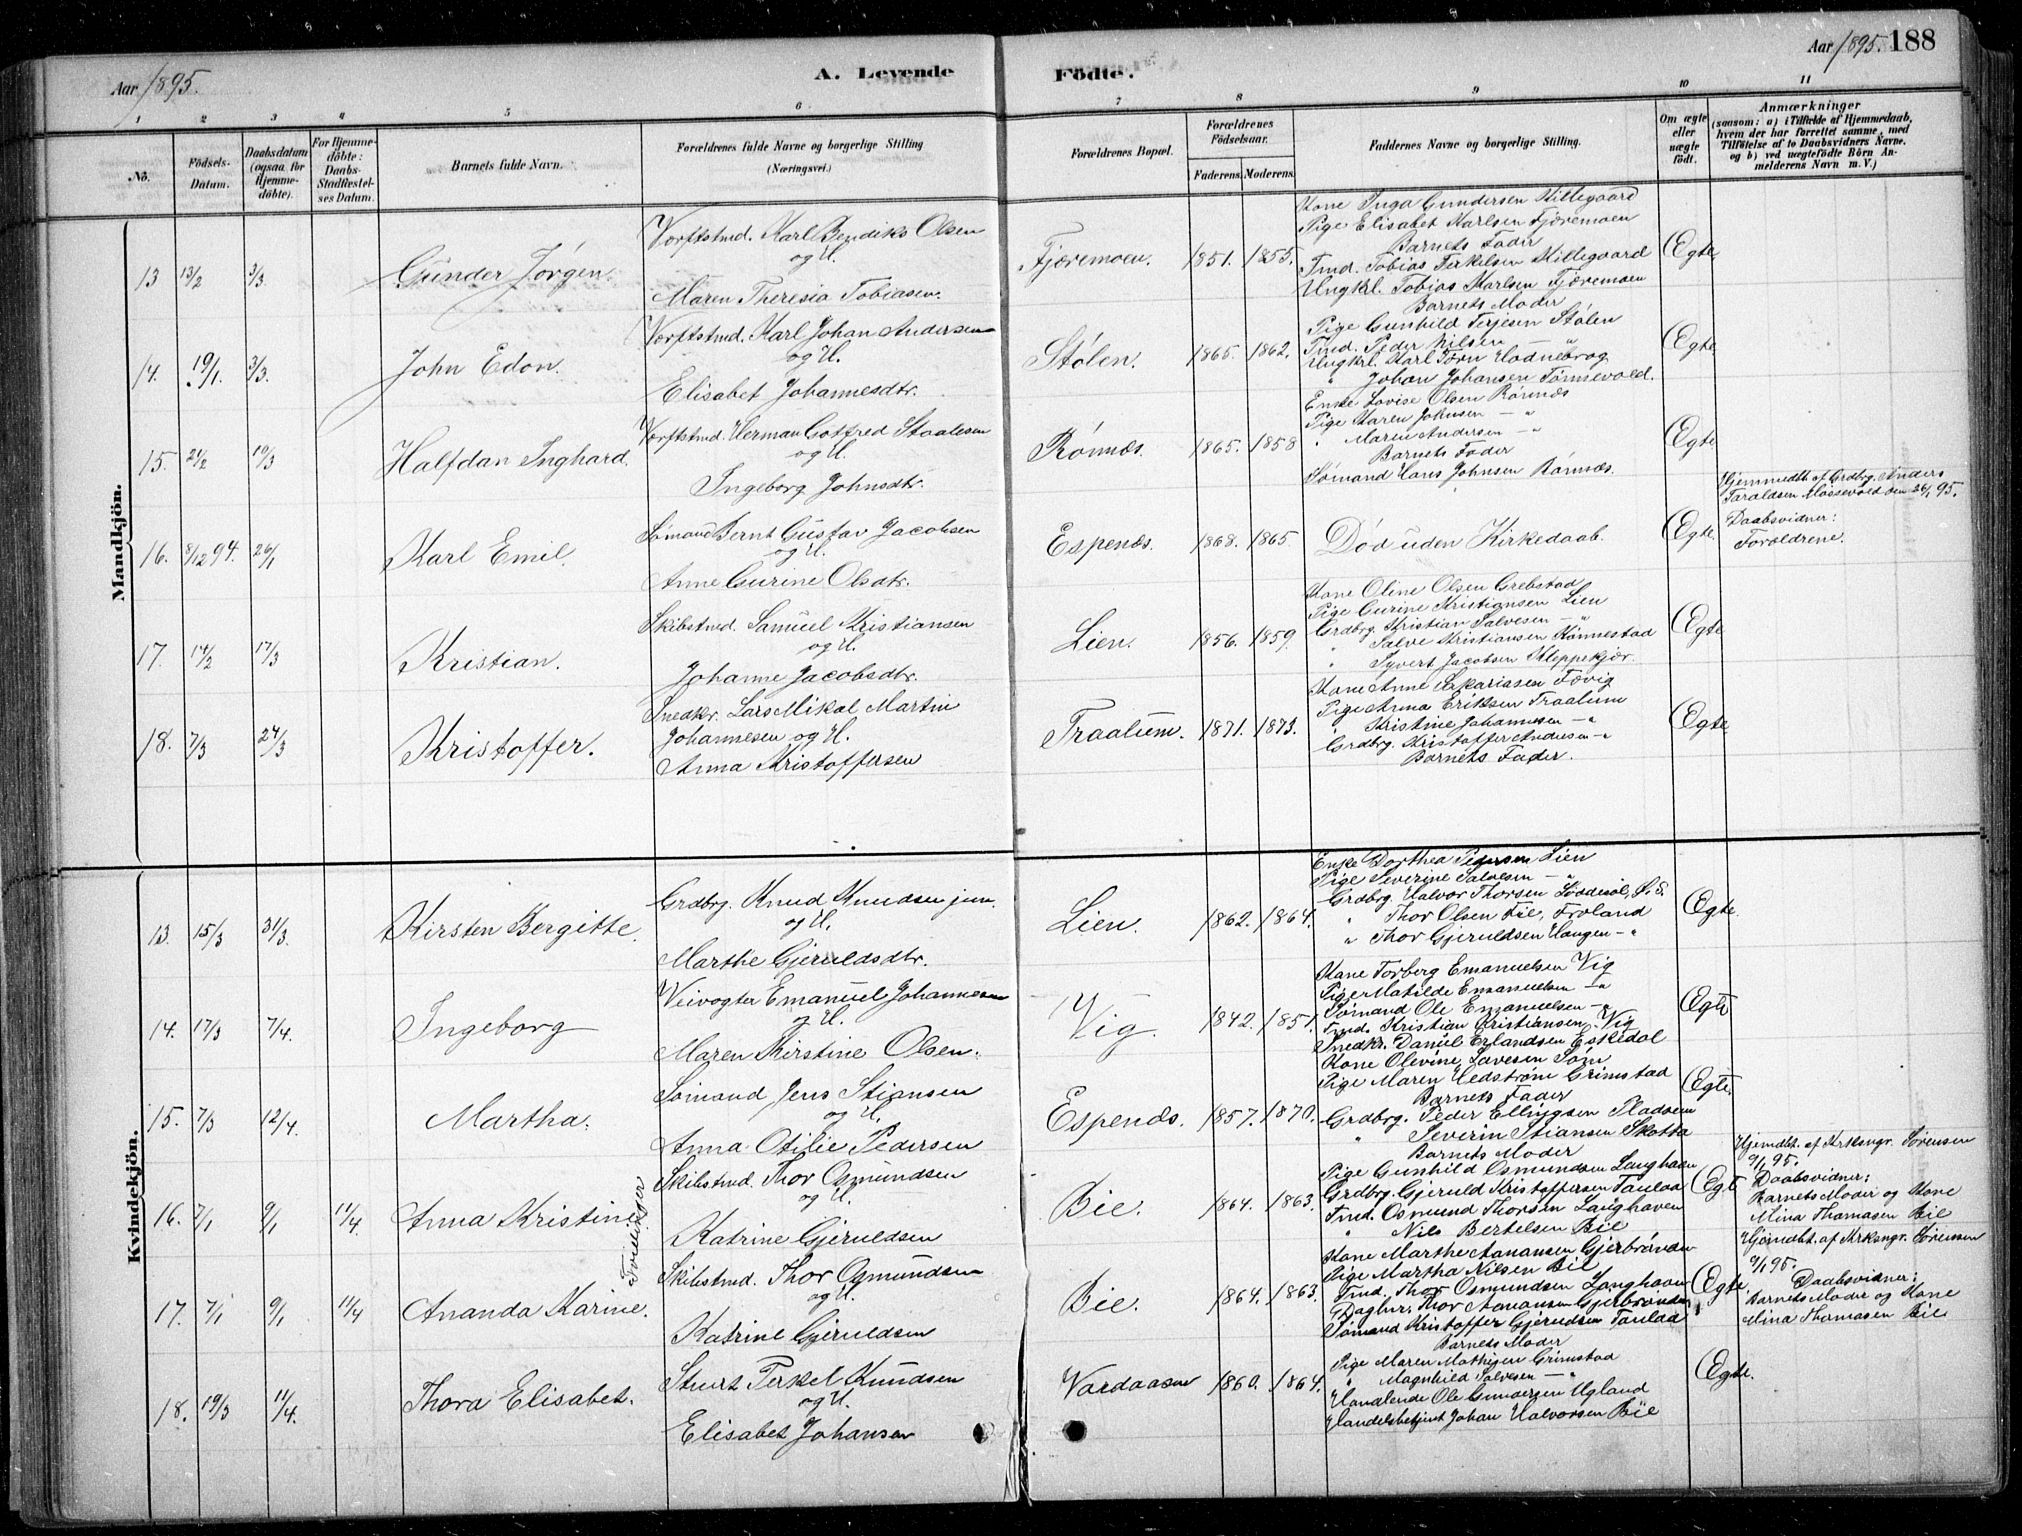 Aar 1895.
A. Levende Födte.
Aar 1895. 188
1 2 3 4 5 6 7 8 9 10 11
No.
Födsels-Datum.
Daabsdatum (ogsaa for Hjemmedöbte).
For Hjemmedöbte: Daabs-Stadfæstelses Datum.
Barnets fulde Navn.
Forældrenes fulde Navne og borgerlige Stilling (Næringsvei.)
Forældrenes Bopæl.
Forældrenes Födselsaar.
Faderens. Moderens.
Faddernes Navne og borgerlige Stilling.
Om ægte eller uægte födt.
Anmærkninger
(saasom: a) i Tilfælde af Hjemmedaab, hvem der har forrettet samme, med Tilföielse af to Daabsvidners Navne, og b) ved uægtefödte Börn Anmelderens Navn m. V.)
Mandkjön.
13 13/2 3/3 Gunder Jørgen. Værftstmd. Karl Bendiks Olsen
og H.
Maren Theresia Tobiasen.
Fjæremoen. 1851. 1855.
Kone Inga Gundersen Killegaard
Pige Elisabet Karlsen Fjæremoen
Barnets Fader
Tmd. Tobias Terkelsen Killegaard
Ungkl. Tobias Karlsen Fjæremoen
Barnets Moder
Ægte
14. 19/1. 3/3. John Edon. Værftstmd. Karl Johan Andersen
og H.
Elisabet Johannesdtr.
Stølen. 1865. 1862.
Pige Gunhild Terjesen Stølen
Tmd. Peder Nilsen — "
Ungkl. Karl Tørn Hodnebrog
" Johan Johansen Tønnevold.
Ægte
15. 21/2 10/3 Halfdan Inghard. Værftstmd. Herman Gotfred Staalesen
og H.
Ingeborg Johnsdtr.
Rønnæs. 1865. 1858
Enke Lovise Olsen Rønnæs
Pige Karen Johnsen — "
" Maren Andersen — "
Barnets Fader
Sømand Hans Johnsen Rønnæs.
Ægte
16. 8/12 94. 26/1 Karl Emil. Sømand Bernt Gustav Jacobsen
og H.
Anne Gurine Olsdtr.
Espenæs. 1868. 1865. Død uden Kirkedaab. Ægte
Hjemmedbt. af Grdbrg. Anders
Taraldsen Mossevold den 26/1 95.
Daabsvidner:
Forældrene.
17. 14/2 17/3 Kristian. Skibstmd. Samuel Kristiansen
og H.
Johanne Jacobsdtr.
Lien. 1856. 1859.
Kone Oline Olsen Grebstad
Pige Gurine Kristiansen Lien
Grdbrg. Kristian Salvesen — "
" Salve Kristiansen Rønnestad
" Syvert Jacobsen Kleppekjær.
Ægte
18. 7/3 24/3 Kristoffer. Snedkr. Lars Mikal Martin
Johannesen og H.
Anna Kristoffersen
Traalum. 1871. 1873.
Kone Anne Sakariasen Fævig
Pige Anna Eriksen Traalum
" Kristine Johannesen — "
Grdbrg. Kristoffer Andersen — "
Barnets Fader.
Ægte
Kvindekjön.
13. 15/3 31/3. Kirsten Bergitte. Grdbrg. Knud Knudsen jun.
og H.
Marthe Gjeruldsdtr.
Lien. 1862. 1864.
Enke Dorthea Pedersen Lien
Pige Severine Salvesen — "
Grdbrg. Halvor Thorsen Løddesøl, Ø. S.
" Thor Olsen Fie, Froland
" Thor Gjeruldsen Haugen — "
Ægte.
14. 17/3 7/4. Ingeborg Veivogter Emanuel Johannesen
og H.
Maren Kirstine Olsen.
Vig. 1842. 1851.
Kone Torberg Emanuelsen Vig
Pige Matilde Emanuelsen — "
Sømand Ole Emanuelsen — "
Tmd. Kristian Kristiansen Vig
Snedkr. Daniel Erlandsen Eskedal
Ægte
15. 7/3 12/4. Martha. Sømand Jens Stiansen
og H.
Anna Otilie Pedersen
Espenæs. 1857. 1870.
Kone Olevine Lavesen Søm
Pige Maren Hedstrøm Grimstad
Barnets Fader
Grdbrg. Peder Ellingsen Pladsen
" Severin Stiansen Skotta
Barnets Moder
Ægte.
16. 7/1 9/1 11/4 Anna Kristine Tvillinger Skibstmd. Thor Osmundsen
og H.
Katrine Gjeruldsen
Bie. 1864. 1863.
Pige Gunhild Osmundsen Langhaven
Grdbrg. Gjeruld Kristoffersen Taulaa
Tmd. Osmund Thorsen Langhaven
" Nils Bertelsen Bie
Ægt
Hjemdbt. af Krksngr. Sørensen
9/1 95.
Daabsvidner:
Barnets Moder og Kone
Mina Thomasen Bie
17. 7/1 9/1 11/4 Ananda Karine. Skibstmd. Thor Osmundsen
og H.
Katrine Gjeruldsen
Bie. 1864. 1863.
Kone Marthe Aanansen Gjerbrønden
Pige Martha Nilsen Bie
Tmd. Thor Osmundsen Langhaven
Dagbrr. Thor Aanansen Gjerbrønden
Sømand Kristoffer Gjeruldsen Taulaa
Barnets Moder
Ægte.
Hjemdbt. af Krksngr. Sørensen
9/1 95.
Daabsvidner:
Barnets Moder og Kone
Mina Thomasen Bie
18. 19/3 11/4. Thora Elisabet. Stuert Terkel Knudsen
og H.
Elisabet Johansen
Vardaasen 1860. 1864.
Pige Maren Mathisen Grimstad
" Magnhild Salvesen — "
Handlende Ole Gundersen Ugland
Handelsbetjent Johan Halvorsen Bie
Ægte.